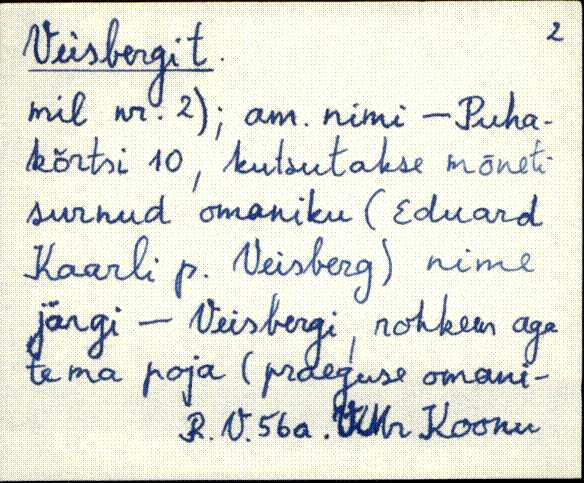 2
Veisbergi t.
mil nr. 2); am. nimi – Puha-
kõrtsi 10, kutsutakse mõneti
surnud omaniku (Eduard
Kaarli p. Veisberg) nime
järgi – Veisbergi, rohkem aga
tema poja (praeguse omani-
R. V. 56a. Koonu